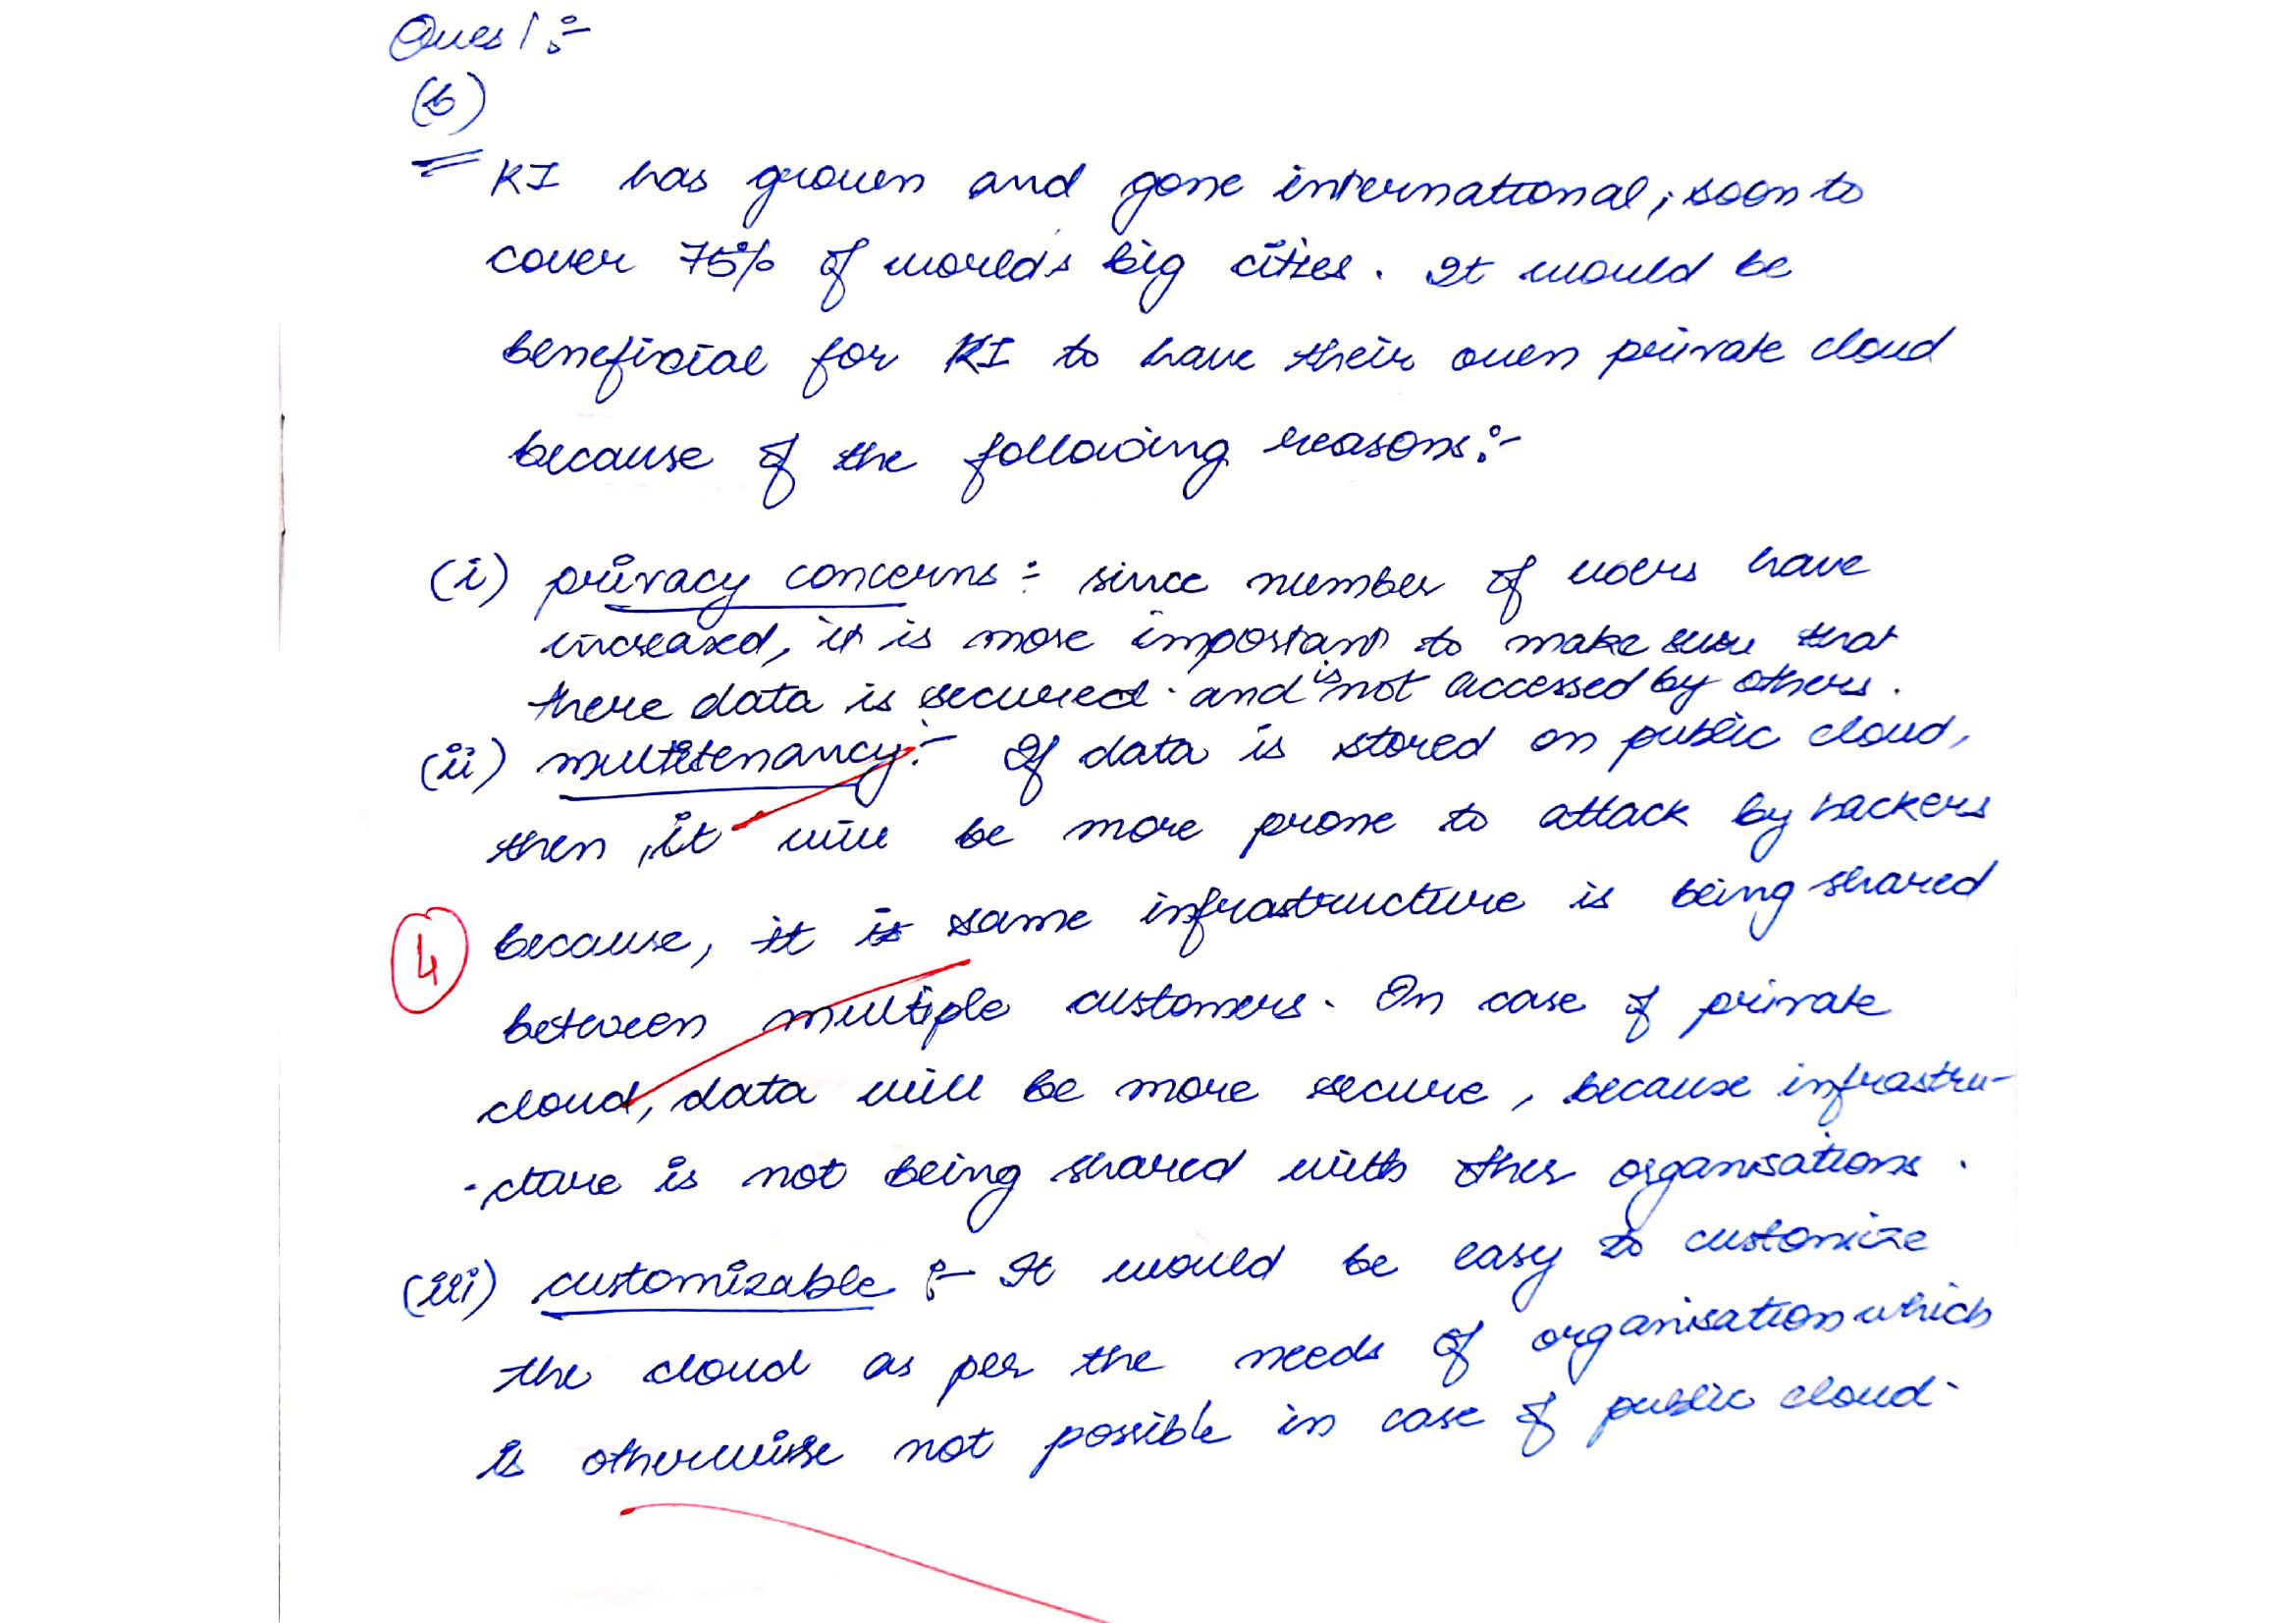 Ques 1 :-
(b)
KI has grown and gone international, soon to
cover 75% of world's big cities. It would be
beneficial for KI to have their own private cloud
because of the following reasons:-
(i) privacy concerns :- since number of users have
increased, it is more important to make sure that
there data is secured. and is not accessed by others.
(ii) multitenancy:- If data is stored on public cloud,
then, it will be more prone to attack by hackers
4 because, it is same infrastructure is being shared
between multiple customers. In case of private
cloud, data will be more secure, because infrastru-
-cture is not being shared with other organisations.
(iii) customizable :- It would be easy to customize
the cloud as per the needs of organisation which
is otherwise not possible in case of public cloud.